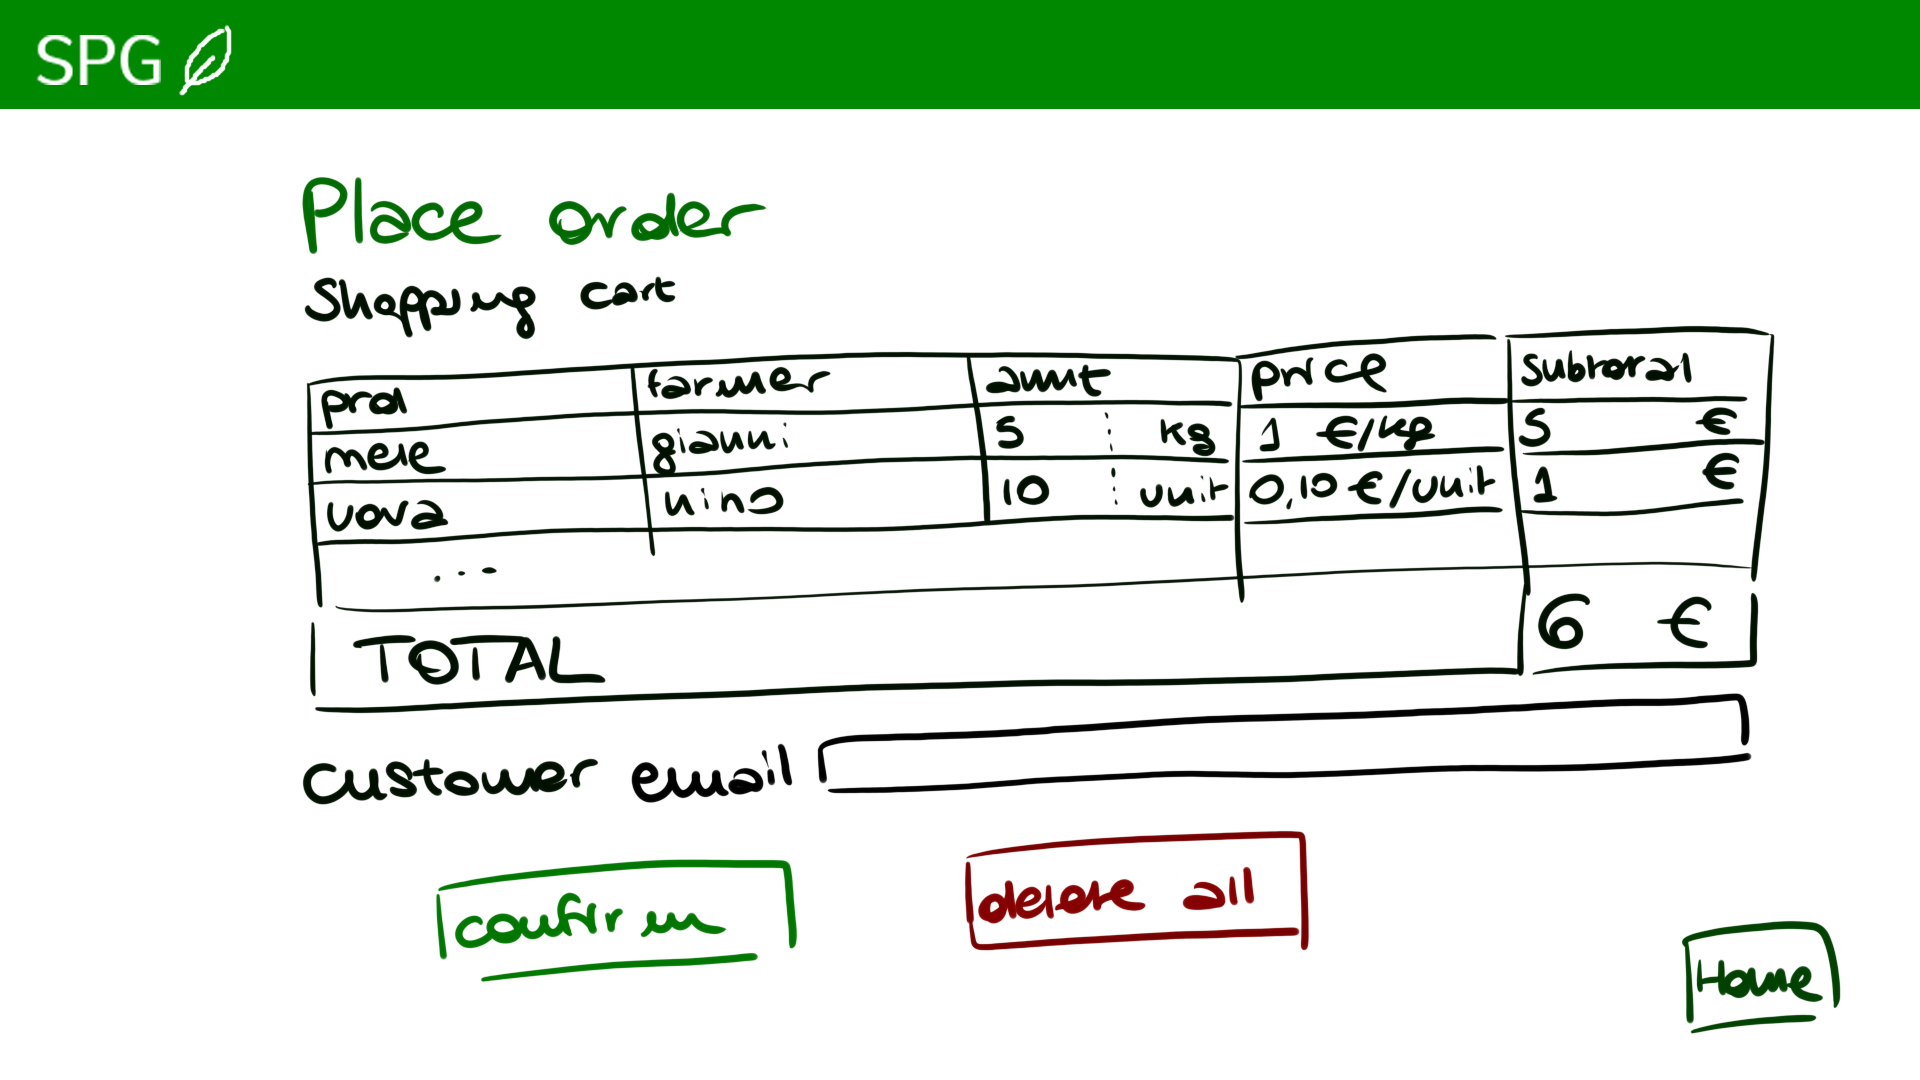 SPG
Place order
Shopping cart
prod farmer amnt price subtotal
mele gianni 5 kg 1 €/kg 5 €
uova nino 10 unit 0,10 €/unit 1 €
...
TOTAL 6 €
customer email
confirm delete all
Home